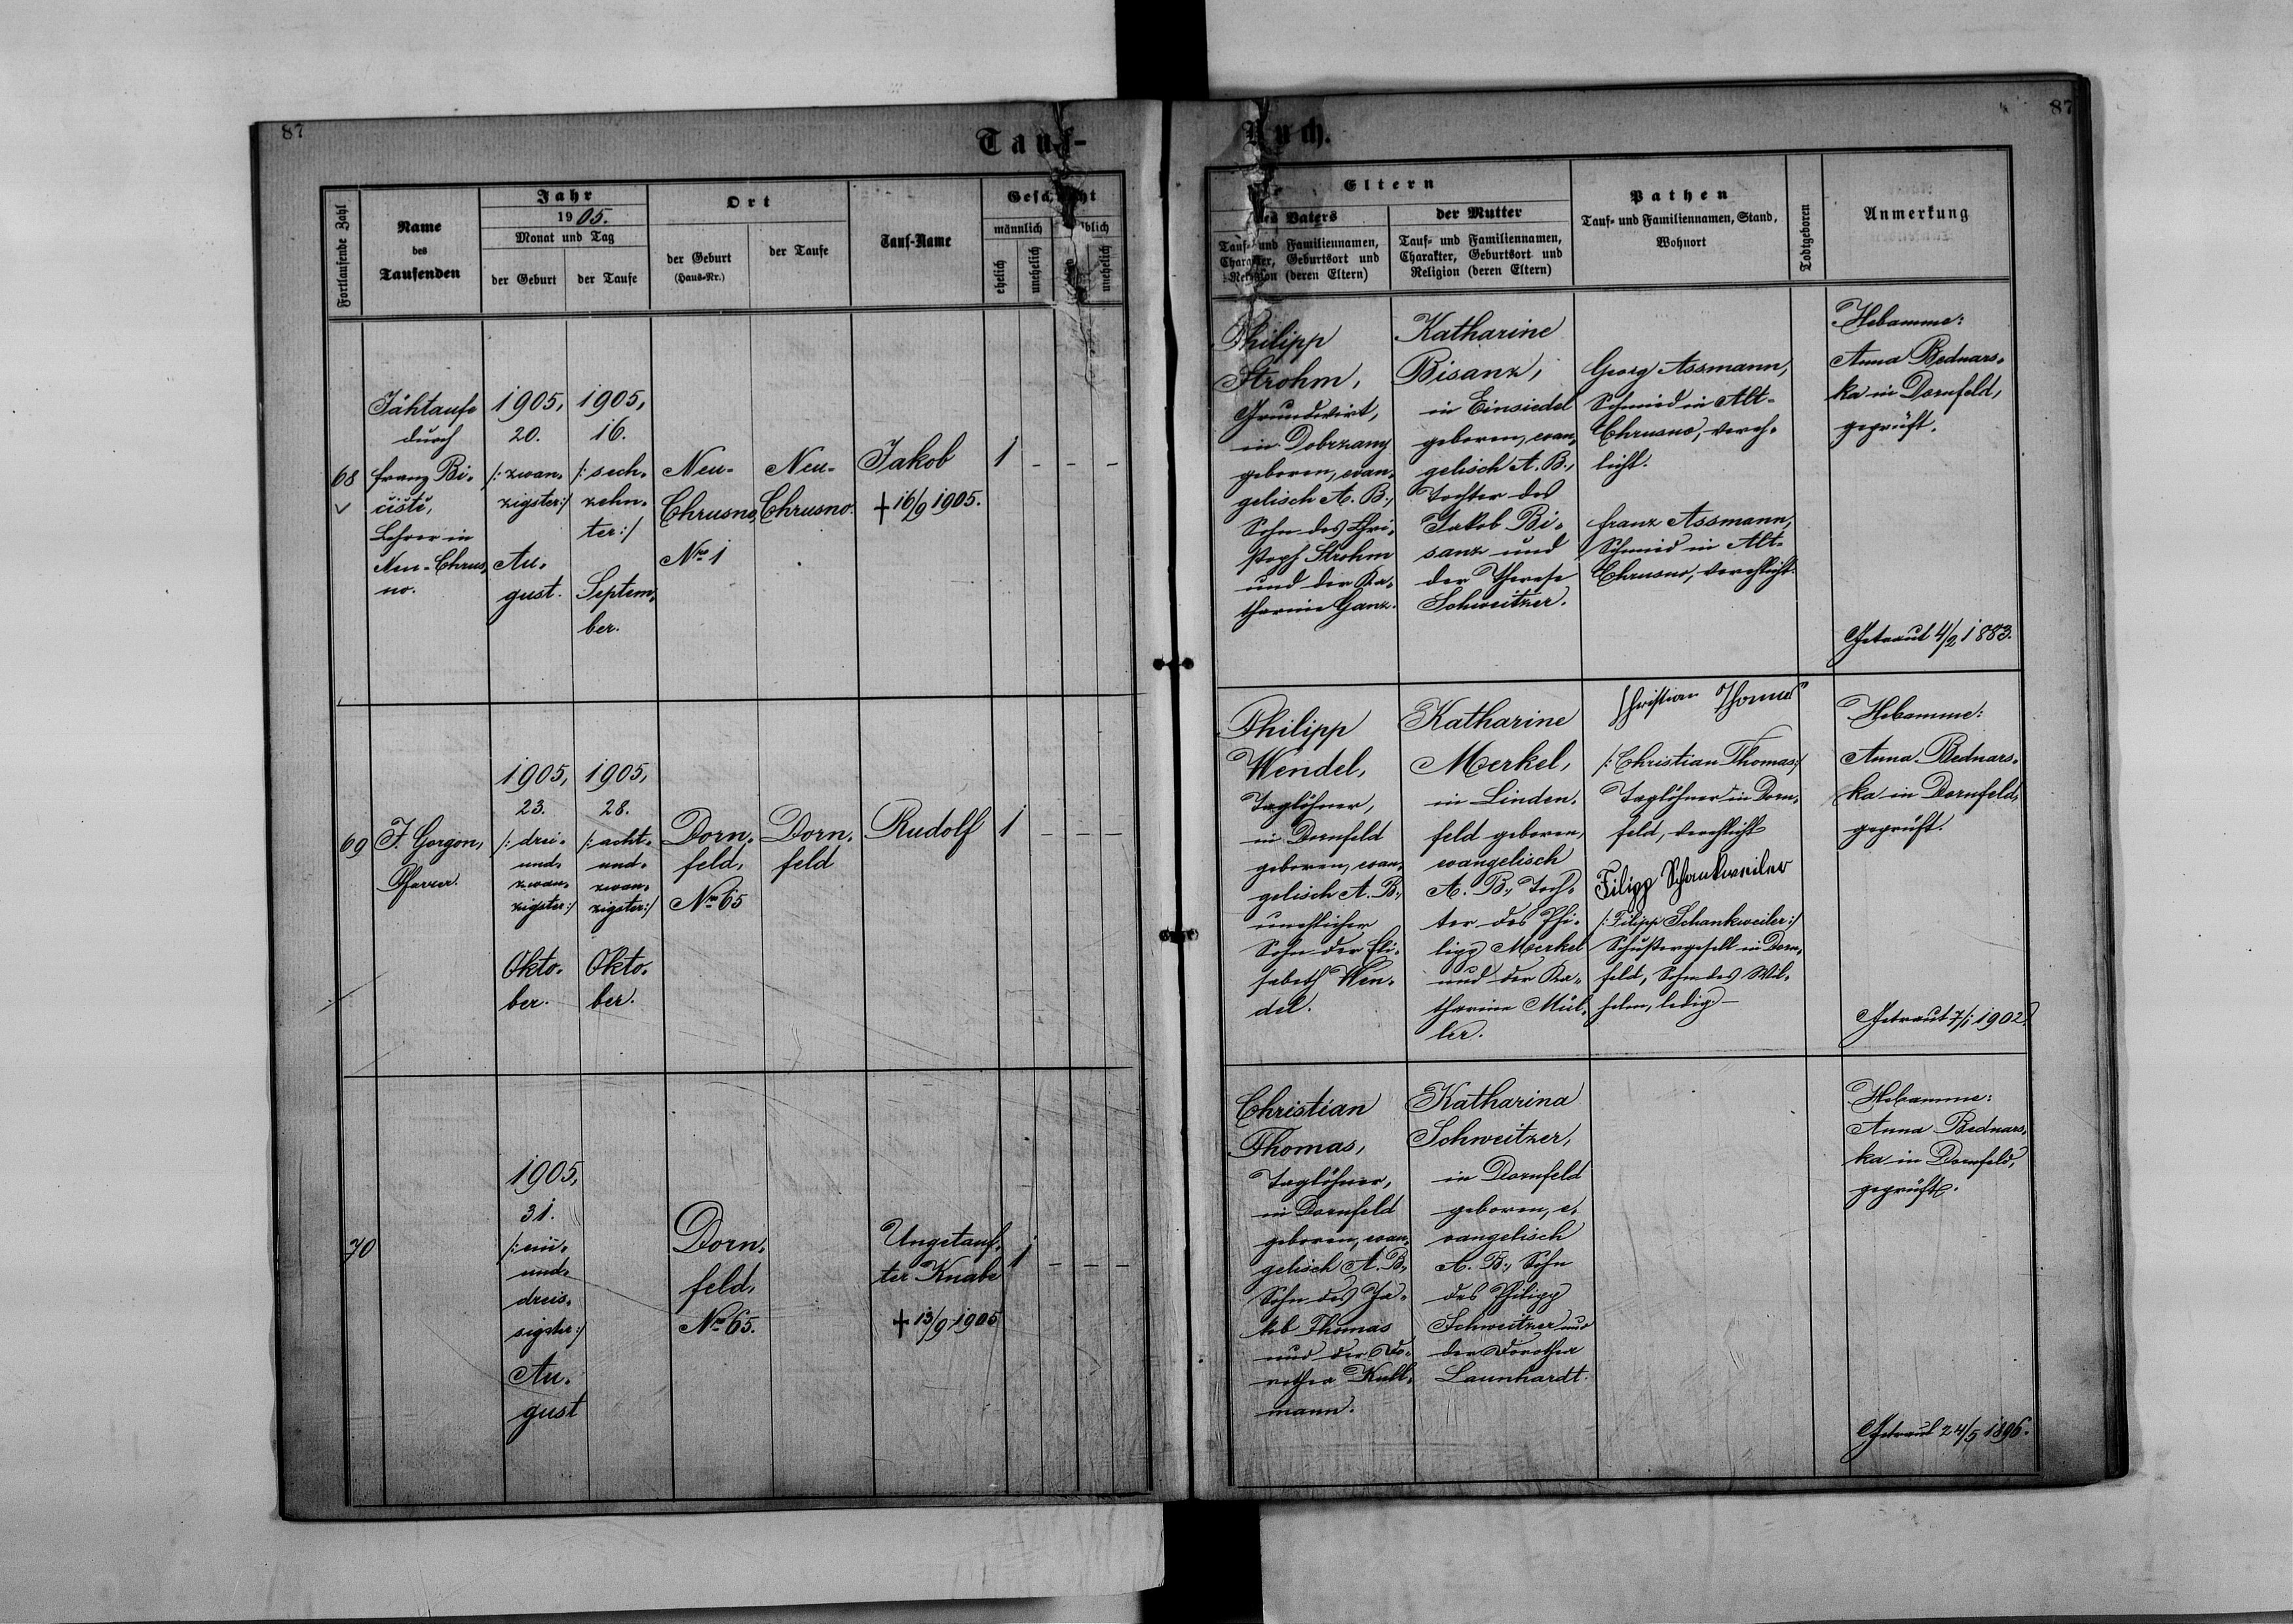 87
Tauf-
Buch.
87
Fortlaufende Zahl
Name
des
Taufenden
Jahr
1905.
Monat und Tag
der Geburt
der Taufe
Ort
der Geburt
(Haus-Nr.)
der Taufe
Tauf-Name
Geschlecht
männlich
weiblich
ehelich
unehelich
unehelich
Eltern
des Vaters
Tauf- und Familiennamen,
Charakter, Geburtsort und
Religion (deren Eltern)
der Mutter
Tauf- und Familiennamen,
Charakter, Geburtsort und
Religion (deren Eltern)
Pathen
Tauf- und Familiennamen, Stand,
Wohnort
Todtgeboren
Anmerkung
68
Jähtaufe
durch
Franz Bi-
čiště,
Lehrer in
Neu-Chrus-
no.
1905,
20.
/: zwan-
zigster:/
Au-
gust.
1905,
16.
/: sech-
zehn-
ter:/
Septem-
ber.
Neu-
Chrusno,
Nro 1
Neu-
Chrusno.
Jakob
+ 16/9 1905.
1 - - -
Philipp
Strohm,
Grundwirt,
in Dobrzany
geboren, evan-
gelisch A. B.,
Sohn des Chri-
stoph Strohm
und der Ka-
tharine Ganz.
Katharine
Bisanz,
in Einsiedel
geboren, evan-
gelisch A. B.,
Tochter des
Jakob Bi-
sanz und
der Therese
Schweitzer.
Georg Assmann,
Schmied in Alt-
Chrusno, vereh-
licht.
Franz Assmann,
Schmied in Alt-
Chrusno, verehlicht.
Hebamme:
Anna Bednars-
ka in Dornfeld,
geprüft.
Getraut 4/2 1883.
69
F. Gorgon,
Pfarrer.
1905,
23.
/: drei-
und-
zwan-
zigster:/
Okto-
ber.
1905,
28.
/: acht-
und-
zwan-
zigster:/
Okto-
ber.
Dorn-
feld,
Nro 65
Dorn-
feld
Rudolf
1 - - -
Philipp
Wendel,
Taglöhner,
in Dornfeld
geboren, evan-
gelisch A. B.,
unehlicher
Sohn der Eli-
sabeth Wen-
del.
Katharine
Merkel,
in Linden-
feld geboren,
evangelisch
A. B., Toch-
ter des Phi-
lipp Merkel
und der Ka-
tharine Mül-
ler.
Christian Thomas
/: Christian Thomas:/
Taglöhner in Dorn-
feld, verehlicht
Filipp Schankweiler
/: Filipp Schankweiler:/
Schustergesell in Dorn-
feld, Sohn des Wil-
helm, ledig -
Hebamme:
Anna Bednars-
ka in Dornfeld,
geprüft.
Getraut 7/1 1902.
70
1905,
31.
/: ein-
und-
dreis-
sigster:/
Au-
gust
Dorn-
feld,
Nro 65.
Ungetauf-
ter Knabe
+ 13/9 1905
1 - - -
Christian
Thomas,
Taglöhner,
in Dornfeld
geboren, evan-
gelisch A. B.,
Sohn des Ja-
kob Thomas
und der Do-
rothea Kull-
mann.
Katharina
Schweitzer,
in Dornfeld
geboren, e-
vangelisch
A. B., Sohn
des Philipp
Schweitzer und
der Dorothea
Launhardt.
Hebamme:
Anna Bednars-
ka in Dornfeld,
geprüft.
Getraut 24/5 1896.